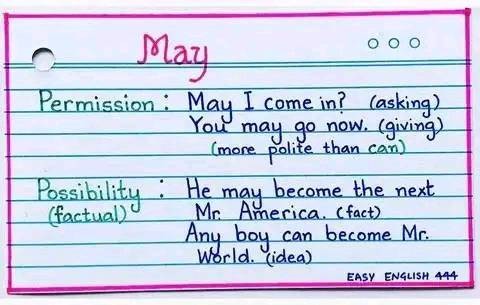 May
Permission : May I come in? (asking)
You may go now. (giving)
(more polite than can)
Possibility : He may become the next
(factual) Mr. America. (fact)
Any boy can become Mr.
World. (idea)
EASY ENGLISH 444